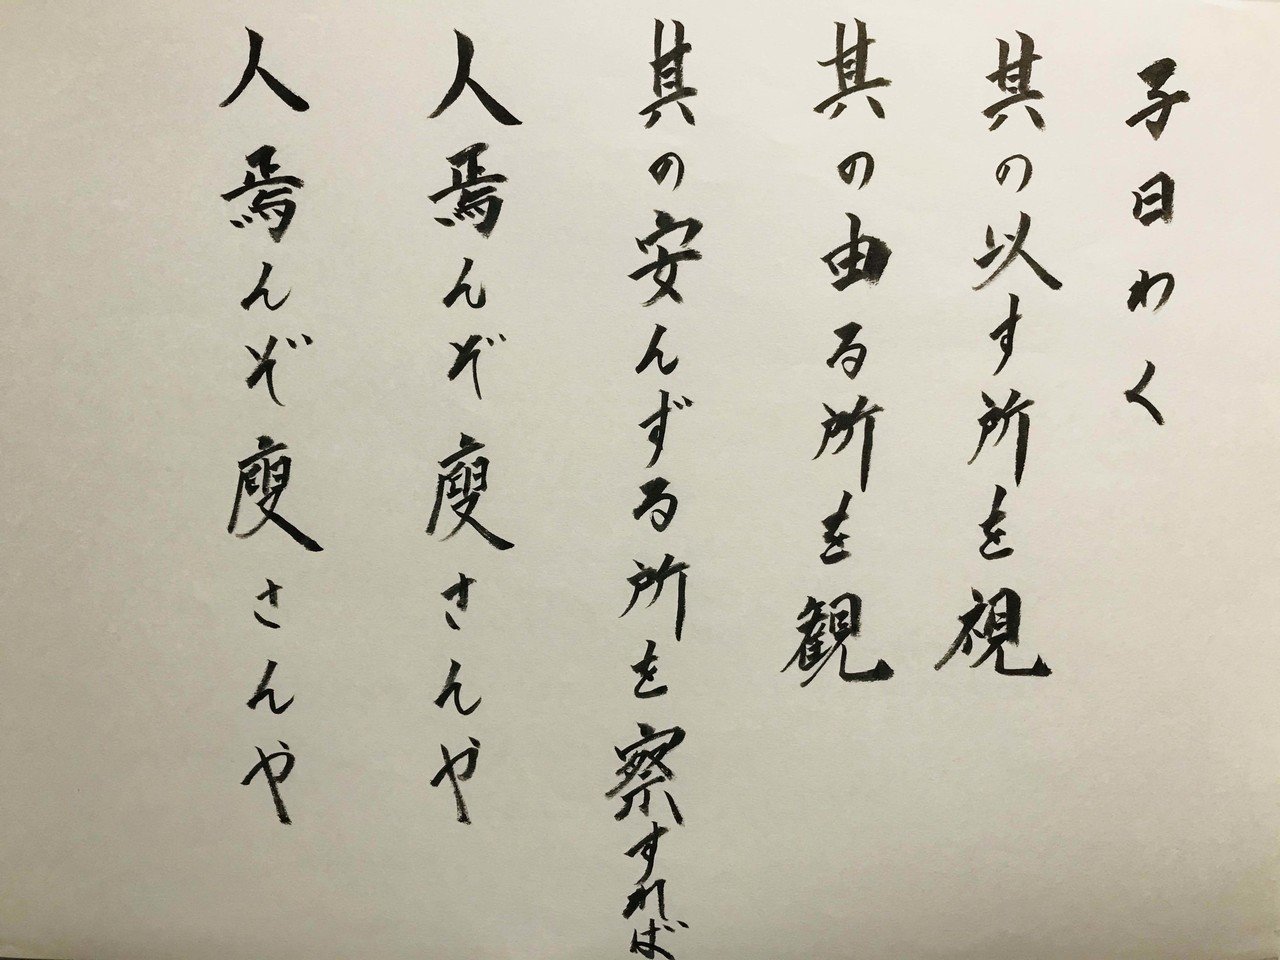 子曰わく
其の以す所を視
其の由る所を観
其の安んずる所を察すれば
人焉んぞ廋さんや
人焉んぞ廋さんや